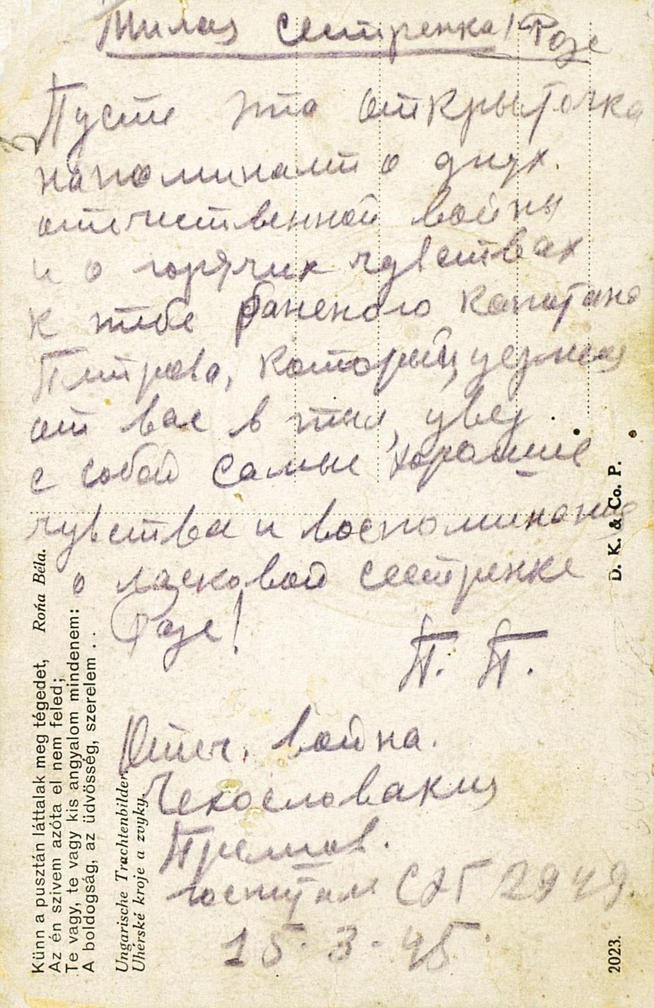 Милая сестренка! Розе
Пусть эта открыточка
напоминает о днях
отечественной войны
и о горячих чувствах
к тебе раненого капитана
Петрова, который, уезжая
от вас в тыл, увез
с собой самые хорошие
чувства и воспоминание
о ласковой сестренке
Розе!
П. П.
Отеч. война.
Чехословакия
госпиталь 2949.
15-3-45
Künn a pusztán láttalak meg tégedet, Rońa Béla.
Az én szivem azóta el nem feled;
Te vagy, te vagy kis angyalom mindenem:
A boldogság, az üdvösség, szerelem . .
Ungarische Trachtenbilder
Uherské kroje a zvyky.
D. K. & Co. P.
2023.